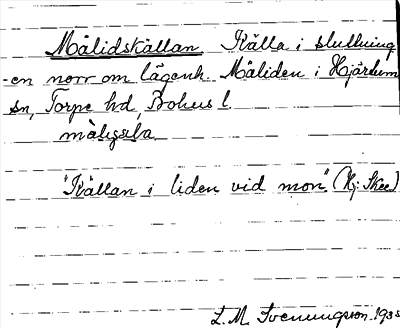 Målidskällan Källa i sluttning
-en norr om lägenh. Måliden i Hjärtum
sn, Torpe hd, Bohus l.
"Källan i liden vid mon" (Hj: Skee)
L. M. Svenungsson 1935